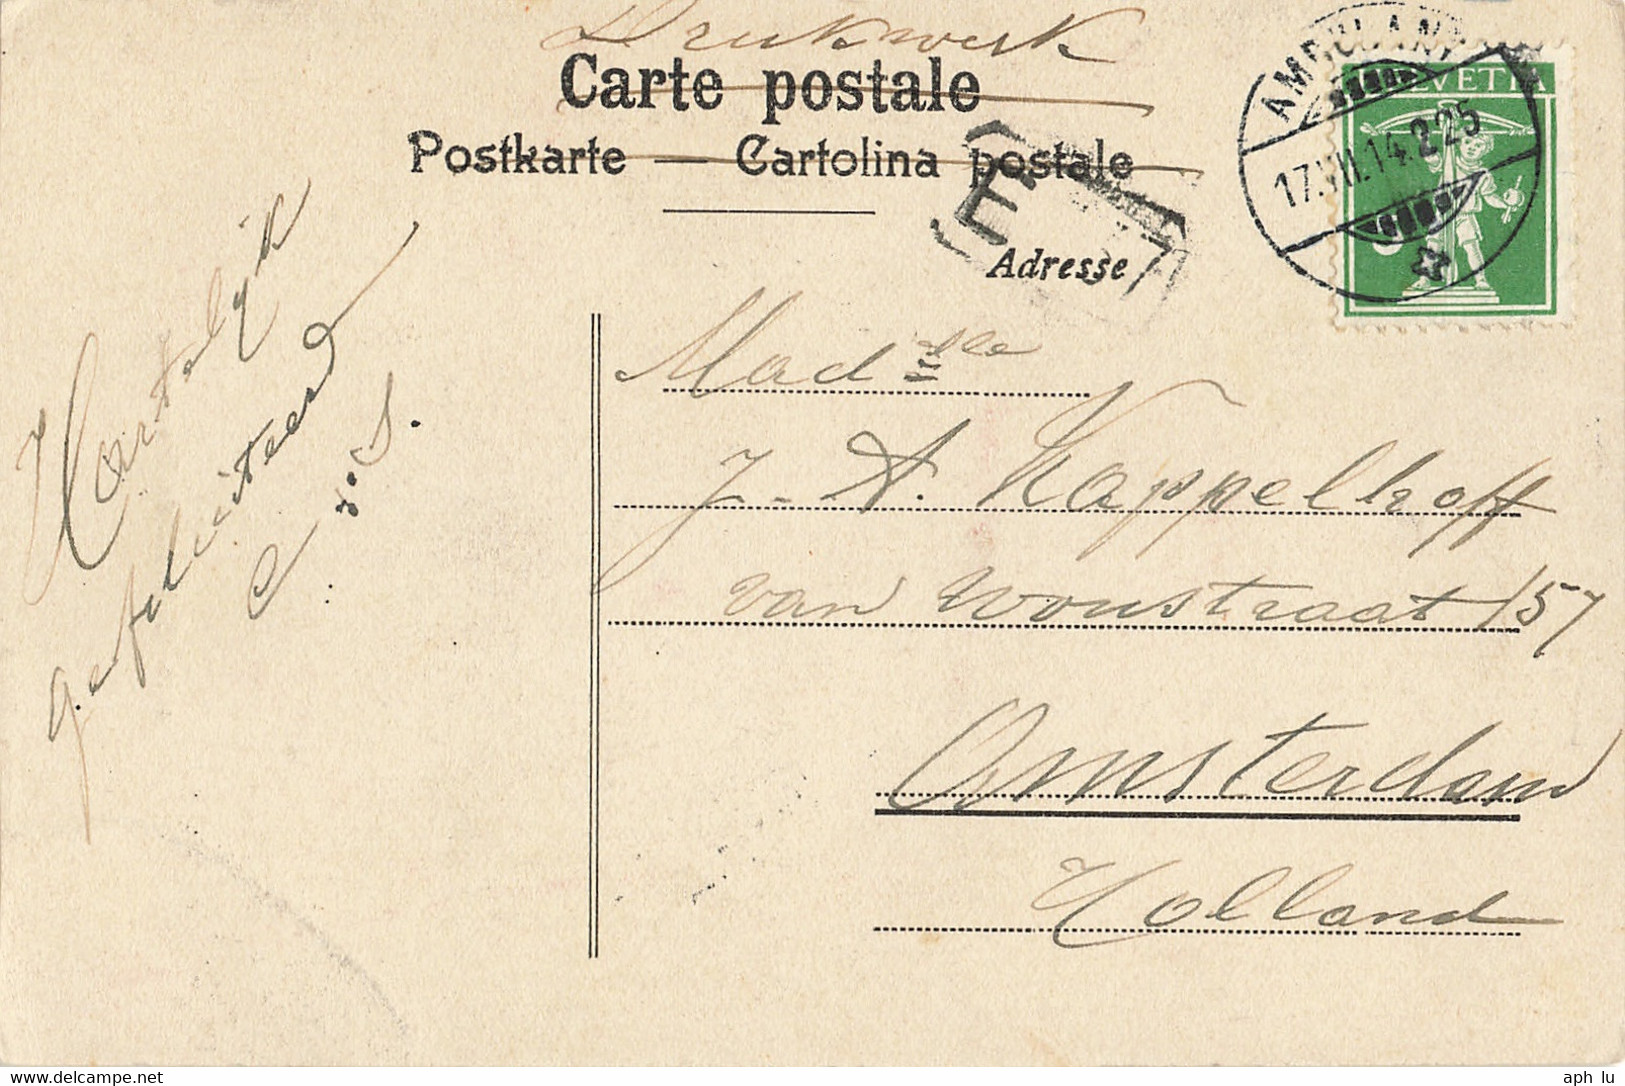 Drukwerk
Carte postale
Postkarte — Cartolina postale
AMBULANT
HELVETIA
17.VII.14.225
E
Adresse
Hartelijk
gefeliciteerd
C. S.
Madslle
J. A. Kappelhoff
van Woustraat 157
Amsterdam
Holland
www.delcampe.net
aph lu